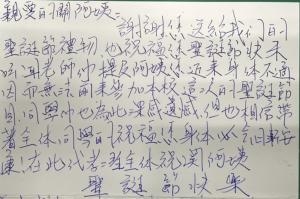 親愛的關阿姨:
謝謝您送給我們的
聖誕節禮物也祝福您聖誕節快樂
聽老師提及阿姨您近來身體不適
因而無法前來參加本校這次的聖誕節
同學們也為此深感遺憾但也相信帶
著全体同學的祝福您身体必會日漸安
康在此代表全体祝關阿姨
聖誕節快樂